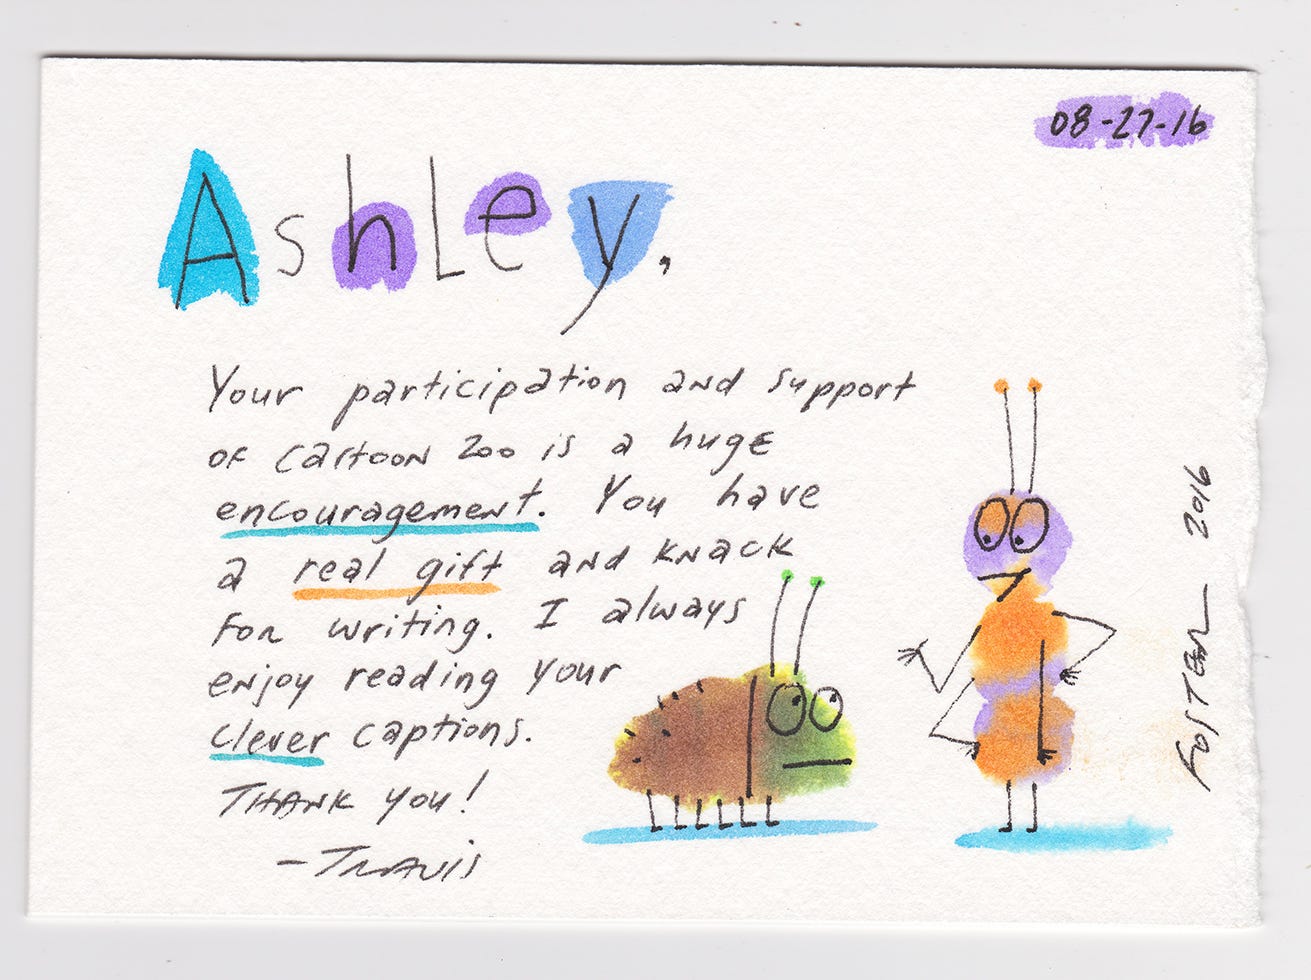 08-27-16
Ashley,
Your participation and support
of Cartoon Zoo is a huge
encouragement. You have
a real gift and knack
for writing. I always
enjoy reading your
clever captions.
THANK you!
-Travis
FOSTER 2016